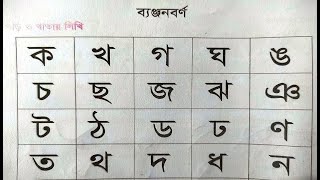 ব্যঞ্জনবর্ণ
খাতায় লিখি
ক খ গ ঘ ঙ
চ ছ জ ঝ ঞ
ট ঠ ড ঢ ণ
ত থ দ ধ ন